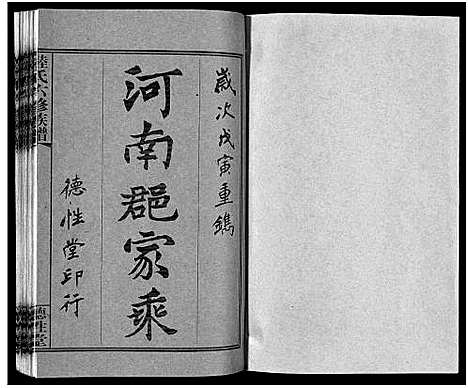 歲次戊寅重鐫
河南郡家乘
德性堂印行
陸氏六修族譜
德性堂